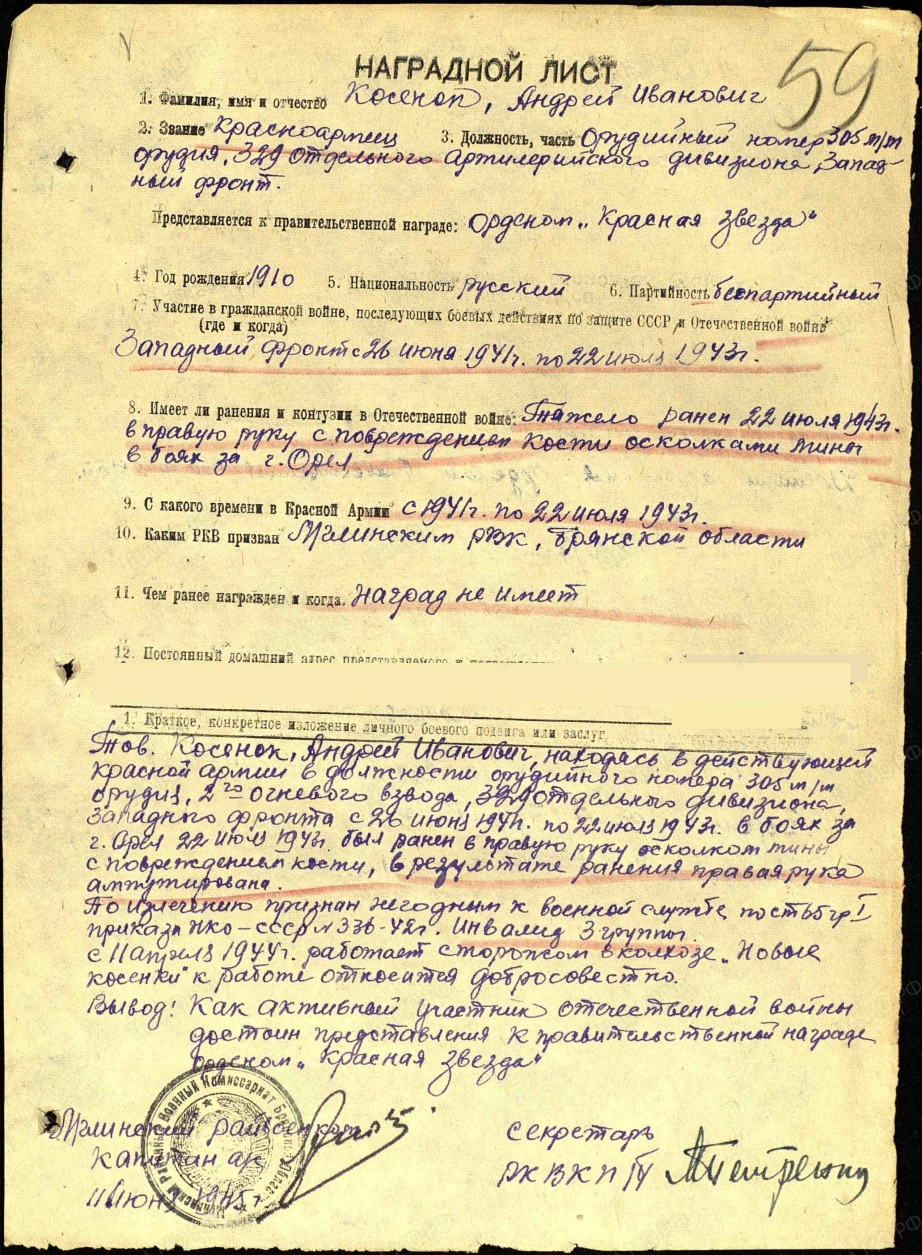 59
НАГРАДНОЙ ЛИСТ
1. Фамилия, имя и отчество Косенок, Андрей Иванович
2. Звание Красноармец 3. Должность, часть Орудийный номер 305 м/м
орудия, 329 отдельного артилерийского дивизиона, Запад-
ный фронт.
Представляется к правительственной награде: орденом „Красная звезда“
4. Год рождения 1910 5. Национальность русский 6. Партийность беспартийный
7. Участие в гражданской войне, последующих боевых действиях по защите СССР и Отечественной войне
(где и когда)
Западный фронт с 26 июня 1941г. по 22 июля 1943г.
8. Имеет ли ранения и контузии в Отечественной войне: Тяжело ранен 22 июля 1943г.
в правую руку с повреждением кости осколками мины
в боях за г. Орел
9. С какого времени в Красной Армии с 1941г. по 22 июля 1943г.
10. Каким РКВ призван Мглинским РВК, Брянской области
11. Чем ранее награжден и когда. Наград не имеет
12. Постоянный домашний адрес представляемого к
1. Краткое, конкретное изложение личного боевого подвига или заслуг
Тов. Косенок, Андрей Иванович, находясь в действующей
красной армии в должности орудийного номера 305 м/м
орудия, 2го огневого взвода, 329 отдельного дивизиона,
Западного фронта с 26 июня 1941г. по 22 июля 1943г. в боях за
г. Орел 22 июля 1943г. был ранен в правую руку осколком мины
с повреждением кости, в результате ранения правая рука
ампутирована.
По излечению признан негодным к военной службе по ст 65 гр I
приказа НКО-СССР № 336-42г. Инвалид 3 группы.
с 11 апреля 1944г. работает сторожем в колхозе „Новые
косенки“ к работе относится добросовестно.
Вывод: Как активный участник отечественной войны
достоин представления к правительственной награде
орденом „Красная звезда“
Мглинский райвоенком
Капитан ас
11 июня 1945г
Секретарь
РК ВКП/б/ Петрекин